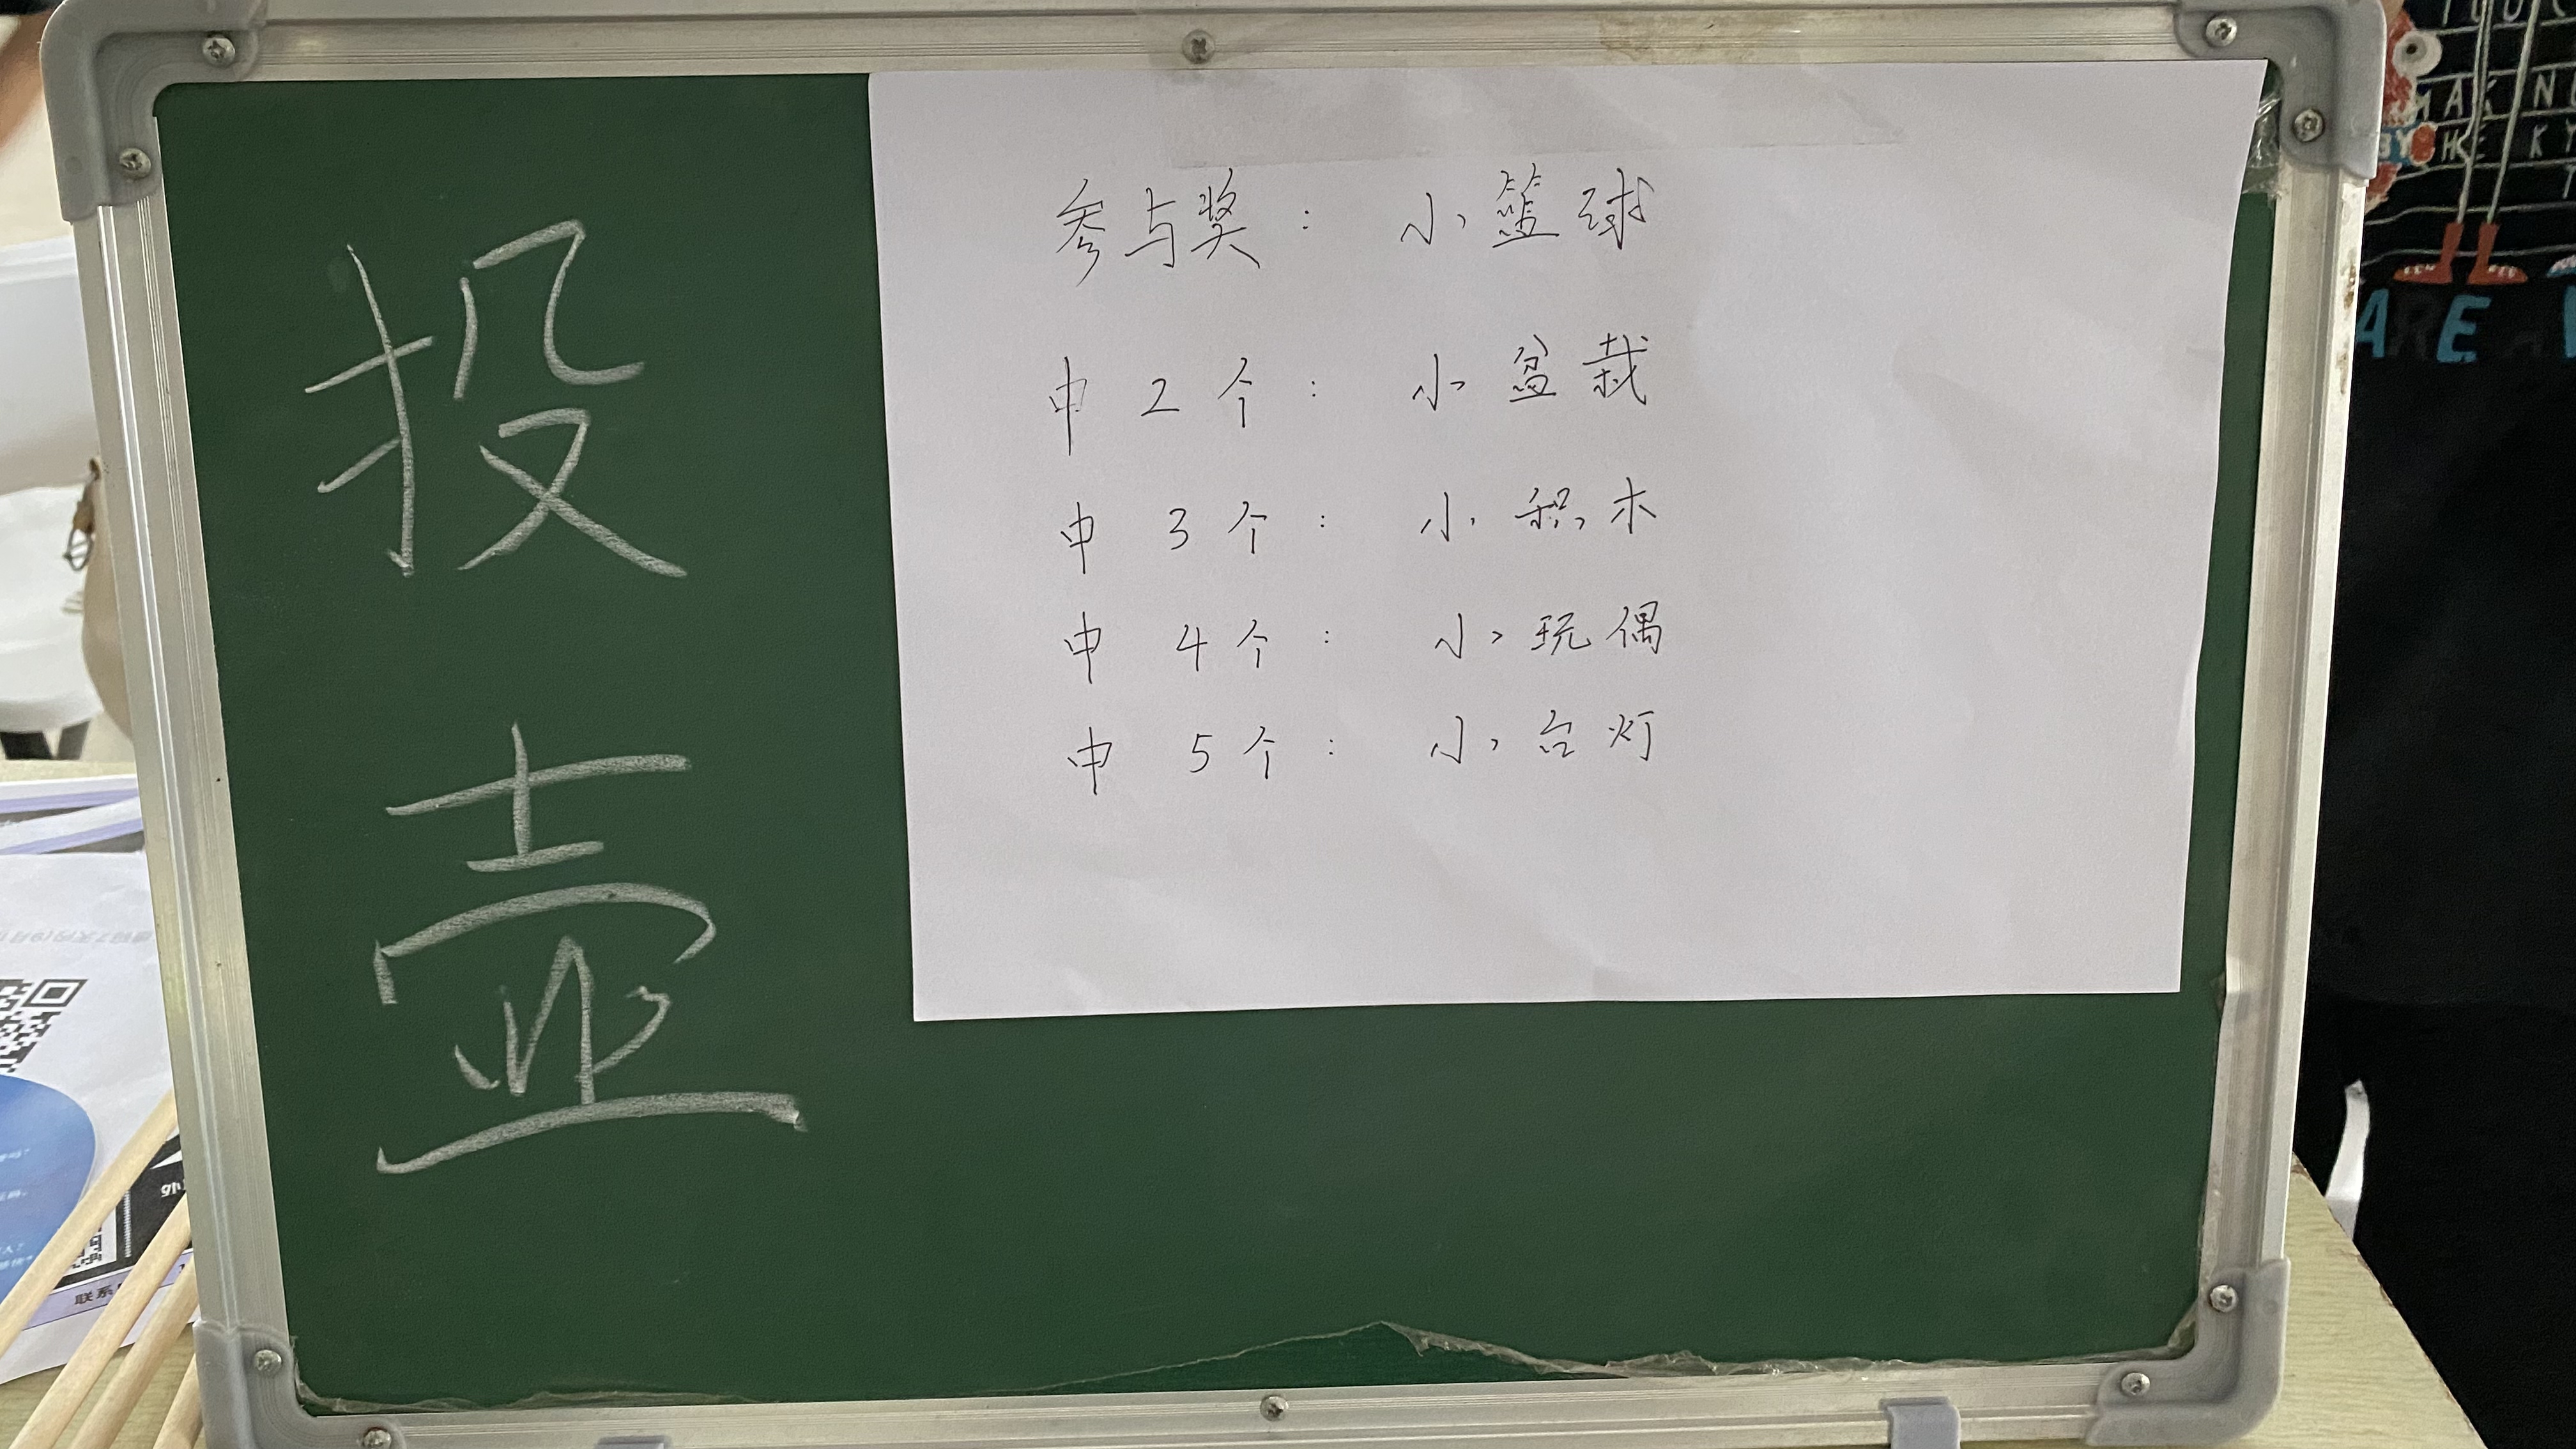 投壶
参与奖：小篮球
中2个：小盆栽
中3个：小积木
中4个：小玩偶
中5个：小台灯
联系
ARE